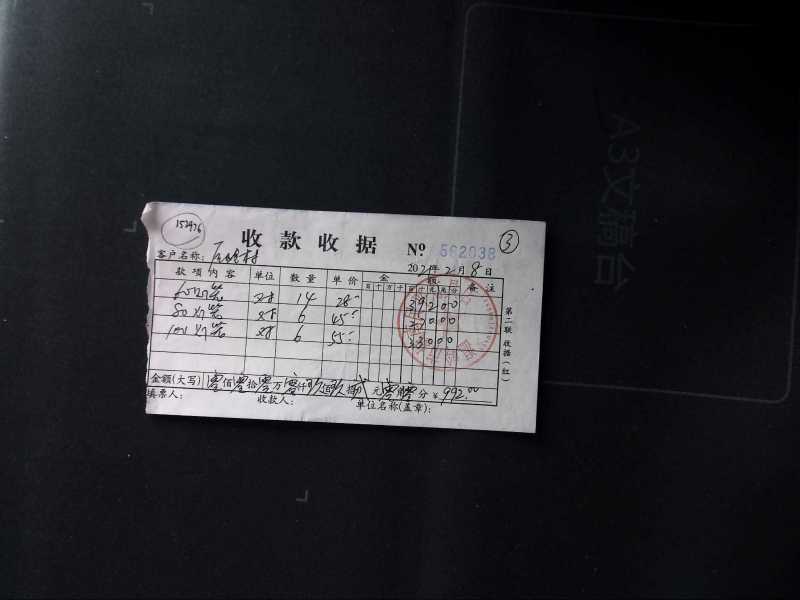 152976
收款收据 Nº 562038 ③
客户名称: 村 2021年2月8日
款项内容 单位 数量 单价 金额 备注
百 十 万 千 百 十 元 角 分
60灯笼 对 14 28 39200
80灯笼 对 6 45 27000
100灯笼 对 6 55 33000
金额(大写) 零佰零拾零万零仟玖佰玖拾贰元零角零分 ¥992.00
填票人: 收款人: 单位名称(盖章):
第二联 收据(红)
A3文稿台